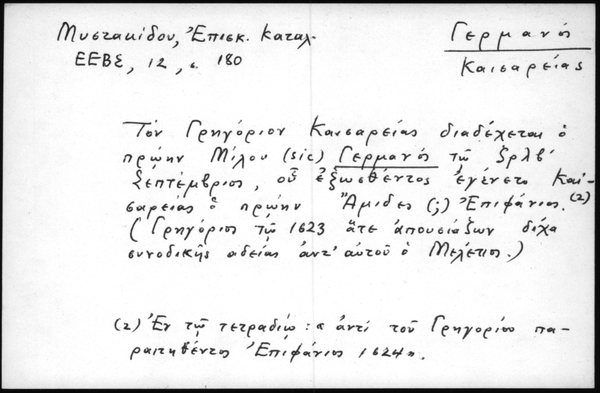 Μυστακίδου, Ἐπισκ. Καταλ.
ΕΕΒΣ, 12, σ. 180
Γερμανός
Καισαρείας
Τὸν Γρηγόριον Καισαρείας διαδέχεται ὁ
πρώην Μίλου (sic) Γερμανός τῷ ζρλβ'
Σεπτέμβριος, οὗ ἐξωσθέντος ἐγένετο Και-
σαρείας ὁ πρώην Ἄμιδες (;) Ἐπιφάνιος. (2)
(Γρηγόριος τῷ 1623 ἅτε ἀπουσιάζων δίχα
συνοδικῆς αδείας ἀντ' αὐτοῦ ὁ Μελέτιος.)
(2) Ἐν τῷ τετραδίῳ: «ἀντί τοῦ Γρηγορίου πα-
ραιτηθέντος Ἐπιφάνιος 1624».